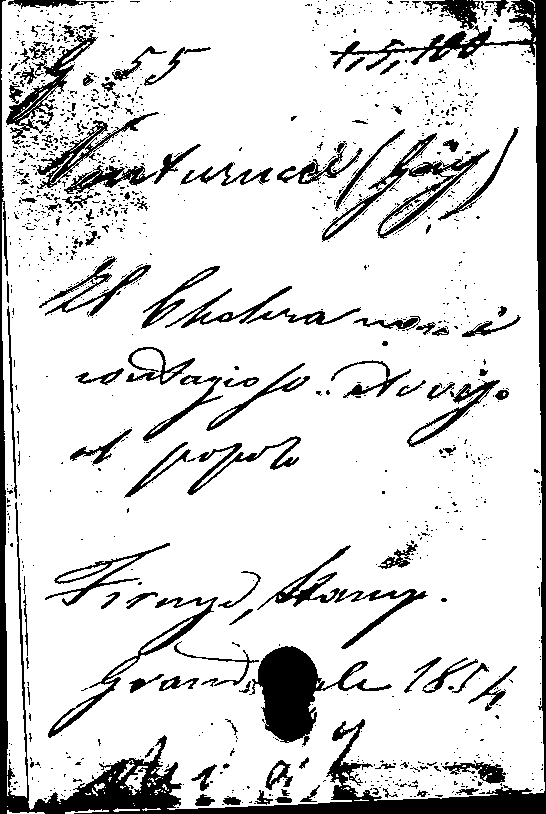 G. 55 1,5,100
Il Cholera non è
contagioso. Avvis.
al popolo
Firenze, Stamp.
Grand ale 1854